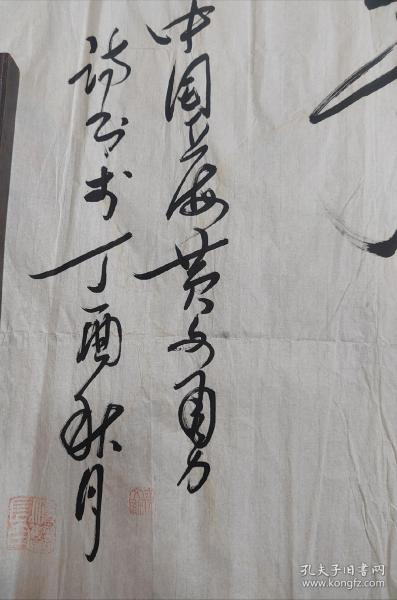 中国上海黄文勇
诗书于丁酉秋月
孔夫子旧书网
www.kongfz.com